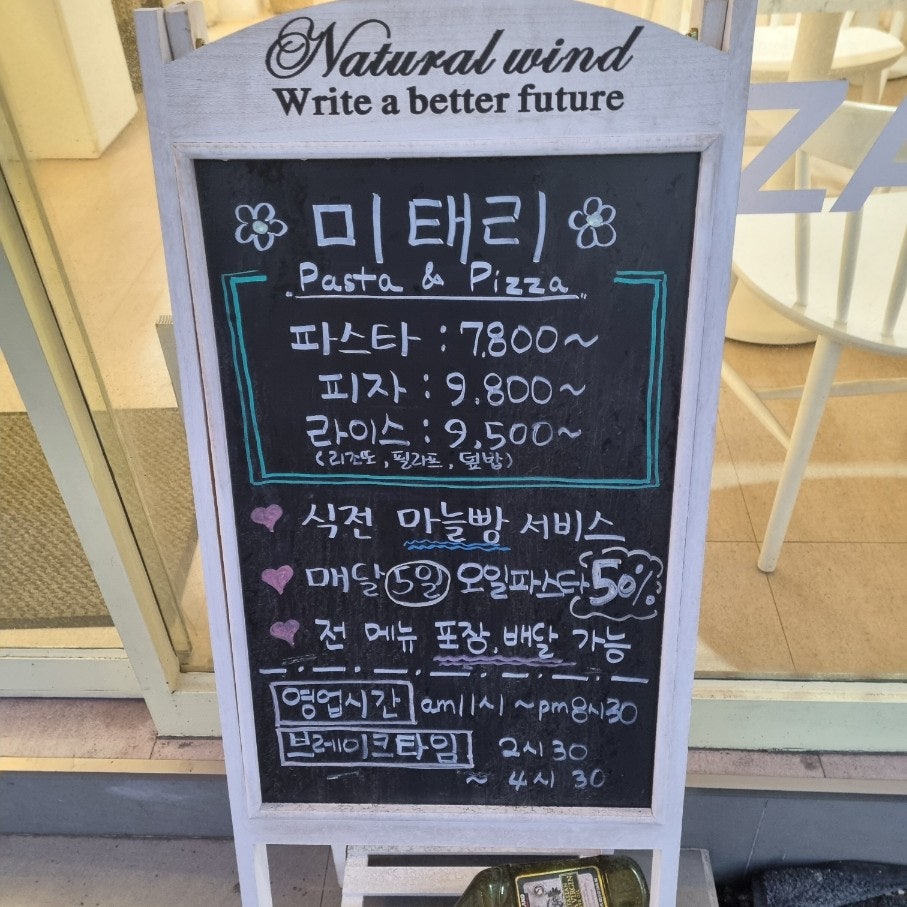 Natural wind
Write a better future
미태리
Pasta & Pizza
파스타 : 7,800~
피자 : 9,800~
라이스 : 9,500~
(리조또, 필라프, 덮밥)
식전 마늘빵 서비스
매달 5일 오일파스타 50%
전 메뉴 포장, 배달 가능
영업시간 am11시 ~ pm8시30
브레이크타임 2시 30
~ 4시 30
ZA